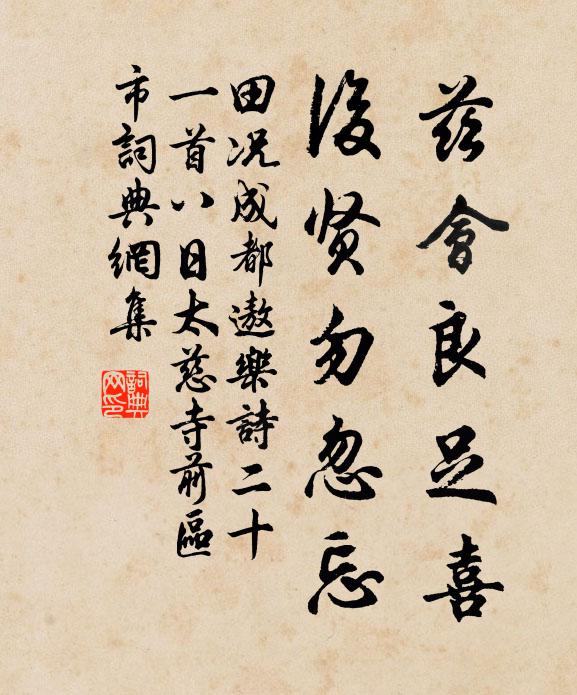 茲會良足喜
後贤勿忽忘
田况成都遨樂詩二十
一首八日太慈寺前區
市詞典網集
詞典网印